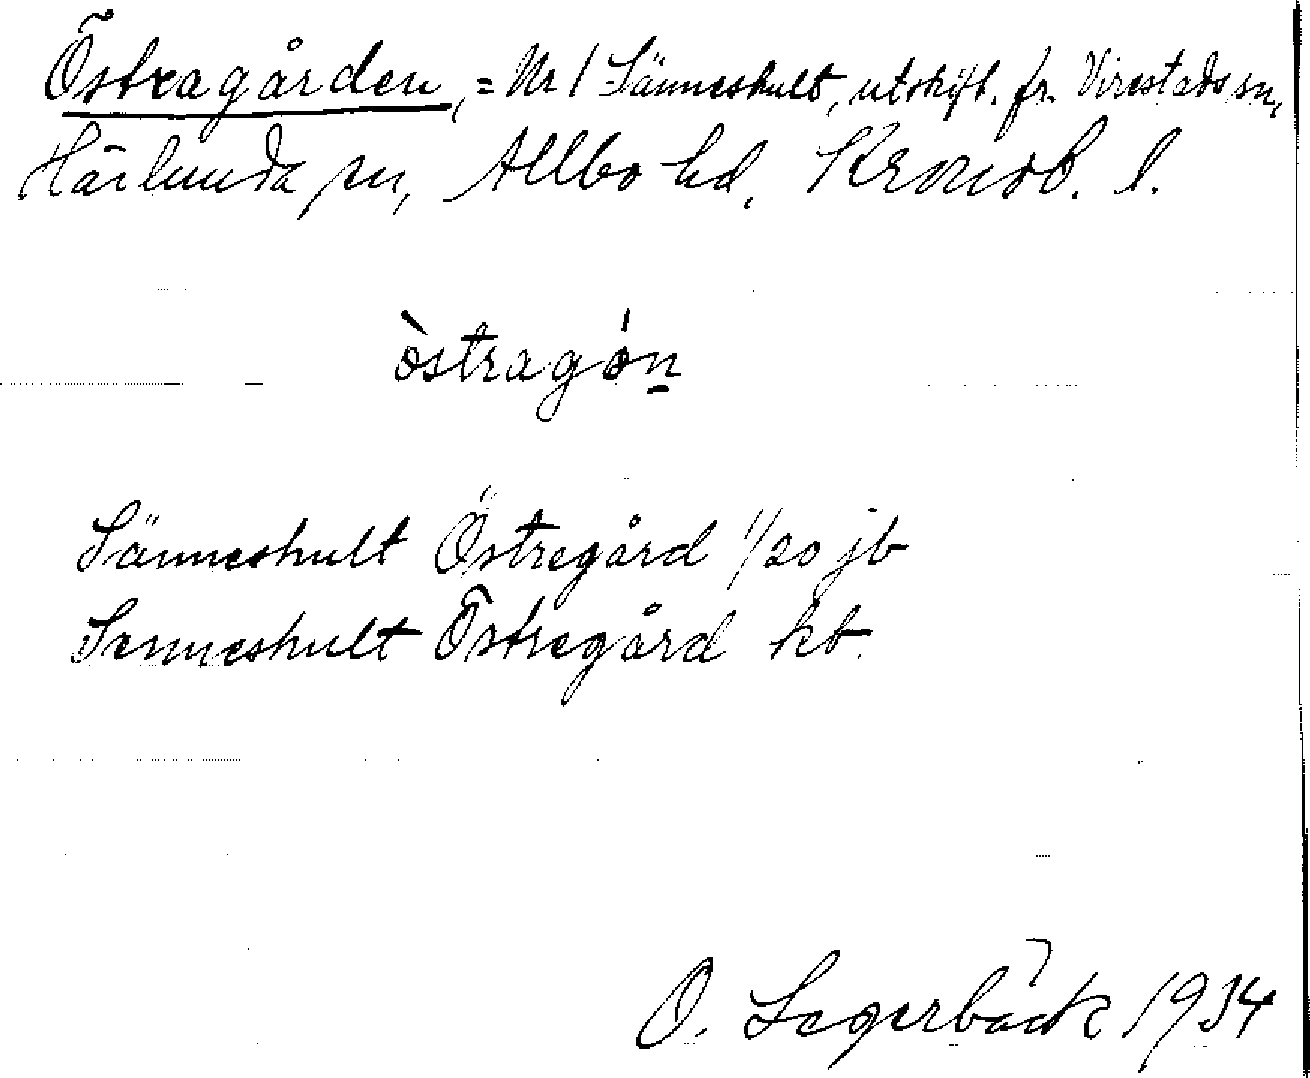 Östragården, = Nr 1 Sänneshult, utskift. fr. Virestads sn,
Härlunda sn, Allbo hd, Kronob. l.
òstragón
Sänneshult Östregård 1/20 jb
Senneshult Östregård kb.
O. Segerbäck 1934